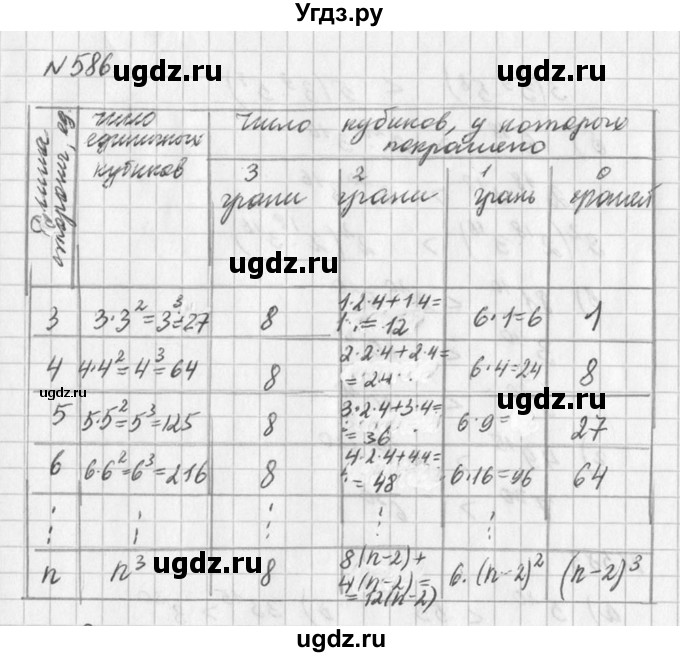 Угдз.ру
№586
ugdz.ru ugdz.ru
Длина стороны, ед
число единичных кубиков
Число кубиков, у которых покрашено
3 грани
2 грани
1 грань
0 граней
ugdz.ru
3 3·3²=3³=27 8 1·2·4+1·4= 1 .= 12 6·1=6 1
4 4·4²=4³=64 8 2·2·4+2·4= =24 6·4=24 8
ugdz.ru ugdz.ru
5 5·5²=5³=125 8 3·2·4+3·4= =36 6·9= 27
6 6·6²=6³=216 8 4·2·4+4·4= =48 6·16=96 64
⋮ ⋮ ⋮ ⋮ ⋮
n n³ 8 8(n-2)+ 4(n-2)= =12(n-2) 6·(n-2)² (n-2)³
ugdz.ru ugdz.ru
ugdz.ru